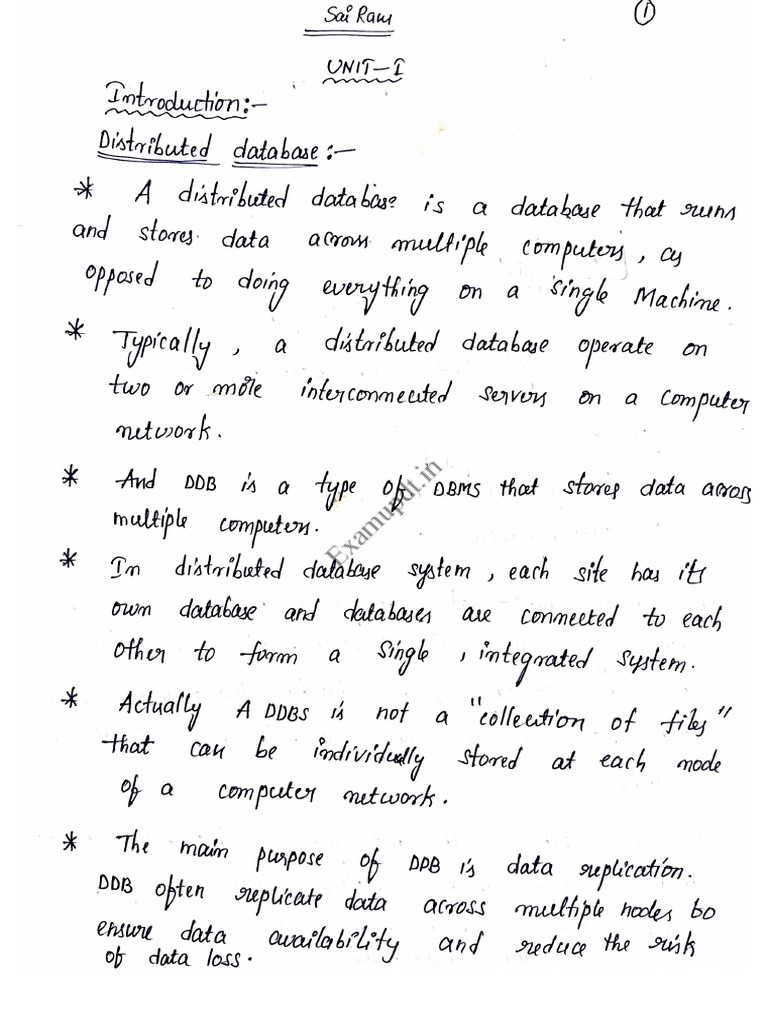 Sai Ram
①
UNIT-I
Introduction:-
Distributed database:-
* A distributed database is a database that runs
and stores data across multiple computers, as
opposed to doing everything on a single Machine.
* Typically, a distributed database operate on
two or more interconnected servers on a computer
network.
* And DDB is a type of DBMS that stores data across
multiple computers.
Examupdt.in
* In distributed database system, each site has its
own database and databases are connected to each
other to form a single, integrated system.
* Actually A DDBS is not a "collection of files"
that can be individually stored at each node
of a computer network.
* The main purpose of DDB is data replication.
DDB often replicate data across multiple nodes to
ensure data availability and reduce the risk
of data loss.